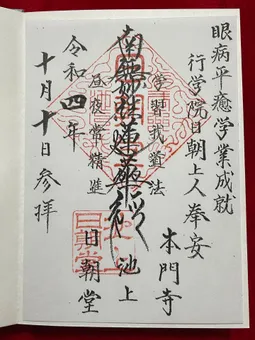 眼病平癒学業成就
行学院日朝上人奉安
本門寺
学習我實法
南無妙法蓮華経
池上
昼夜常精進
日朝堂
令和四年
十月十日参拝
日朝堂